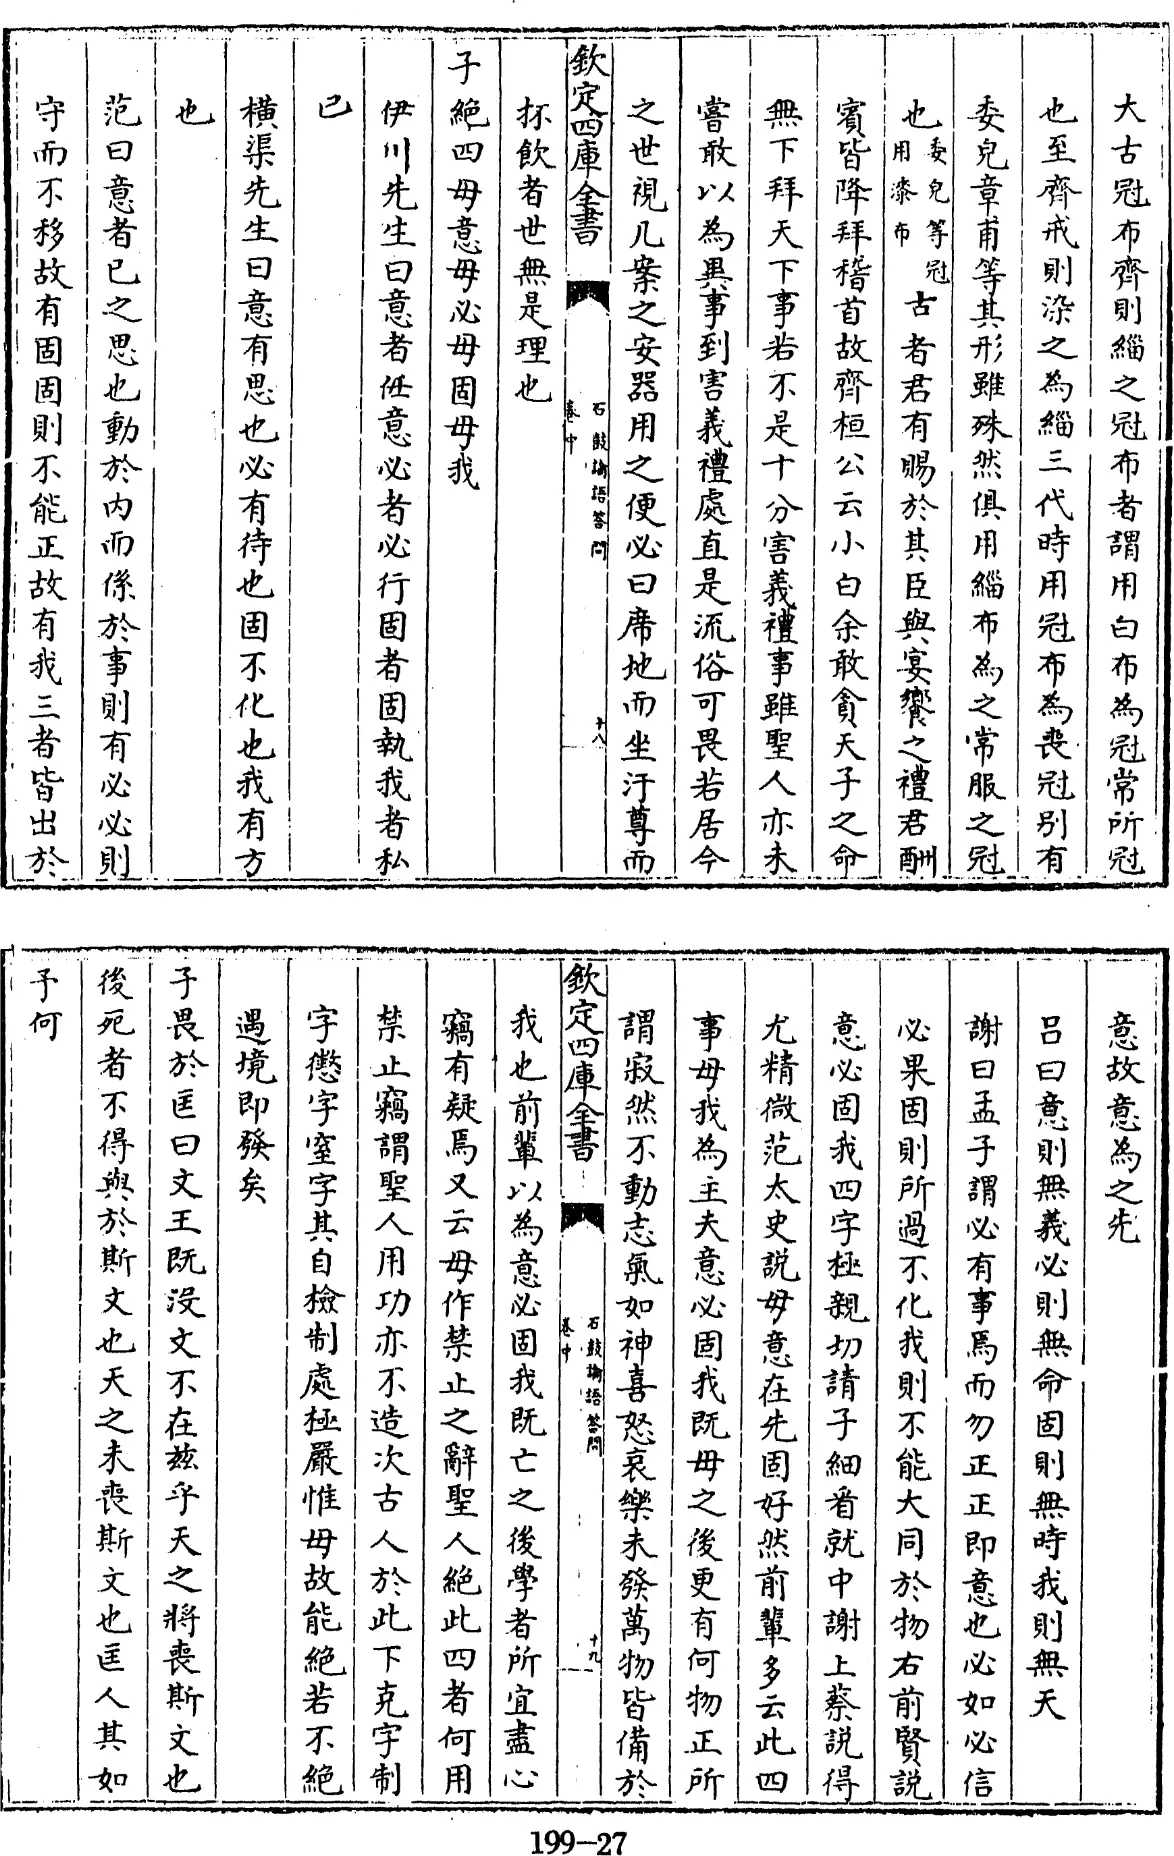 大古冠布齊則緇之冠布者謂用白布為冠常所冠
也至齊戒則染之為緇三代時用冠布為喪冠別有
委皃章甫等其形雖殊然俱用緇布為之常服之冠
也委皃等冠用漆布古者君有賜於其臣與宴饗之禮君酬
賓皆降拜稽首故齊桓公云小白余敢貪天子之命
無下拜天下事若不是十分害義禮事雖聖人亦未
嘗敢以為異事到害義禮處直是流俗可畏若居今
之世視几案之安器用之便必曰席地而坐汙尊而
欽定四庫全書
石鼓論語答問
卷中
十八
抔飲者世無是理也
子絶四毋意毋必毋固毋我
伊川先生曰意者任意必者必行固者固執我者私
已
橫渠先生曰意有思也必有待也固不化也我有方
也
范曰意者已之思也動於内而係於事則有必必則
守而不移故有固固則不能正故有我三者皆出於
意故意為之先
呂曰意則無義必則無命固則無時我則無天
謝曰孟子謂必有事焉而勿正正即意也必如必信
必果固則所過不化我則不能大同於物右前賢説
意必固我四字極親切請子細看就中謝上蔡説得
尤精微范太史説毋意在先固好然前輩多云此四
事毋我為主夫意必固我既毋之後更有何物正所
謂寂然不動志氣如神喜怒哀樂未發萬物皆備於
欽定四庫全書
石鼓論語答問
卷中
十九
我也前輩以為意必固我既亡之後學者所宜盡心
竊有疑焉又云毋作禁止之辭聖人絶此四者何用
禁止竊謂聖人用功亦不造次古人於此下克字制
字懲字窒字其自檢制處極嚴惟毋故能絶若不絶
遇境即發矣
子畏於匡曰文王既没文不在兹乎天之將喪斯文也
後死者不得與於斯文也天之未喪斯文也匡人其如
予何
199-27